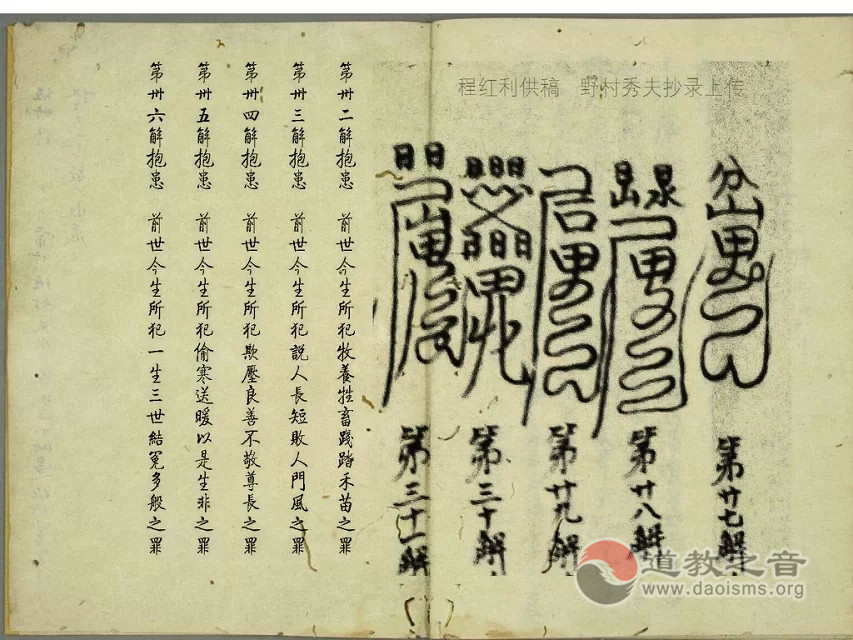 程红利供稿 野村秀夫抄录上传
第廿七解
第廿八解
第廿九解
第三十解
第三十一解
第卅二解抱患 前世今生所犯牧養牲畜踐踏禾苗之罪
第卅三解抱患 前世今生所犯説人長短敗人門風之罪
第卅四解抱患 前世今生所犯欺壓良善不敬尊長之罪
第卅五解抱患 前世今生所犯偷寒送暖以是生非之罪
第卅六解抱患 前世今生所犯一生三世結冤多般之罪
道教之音
www.daoisms.org